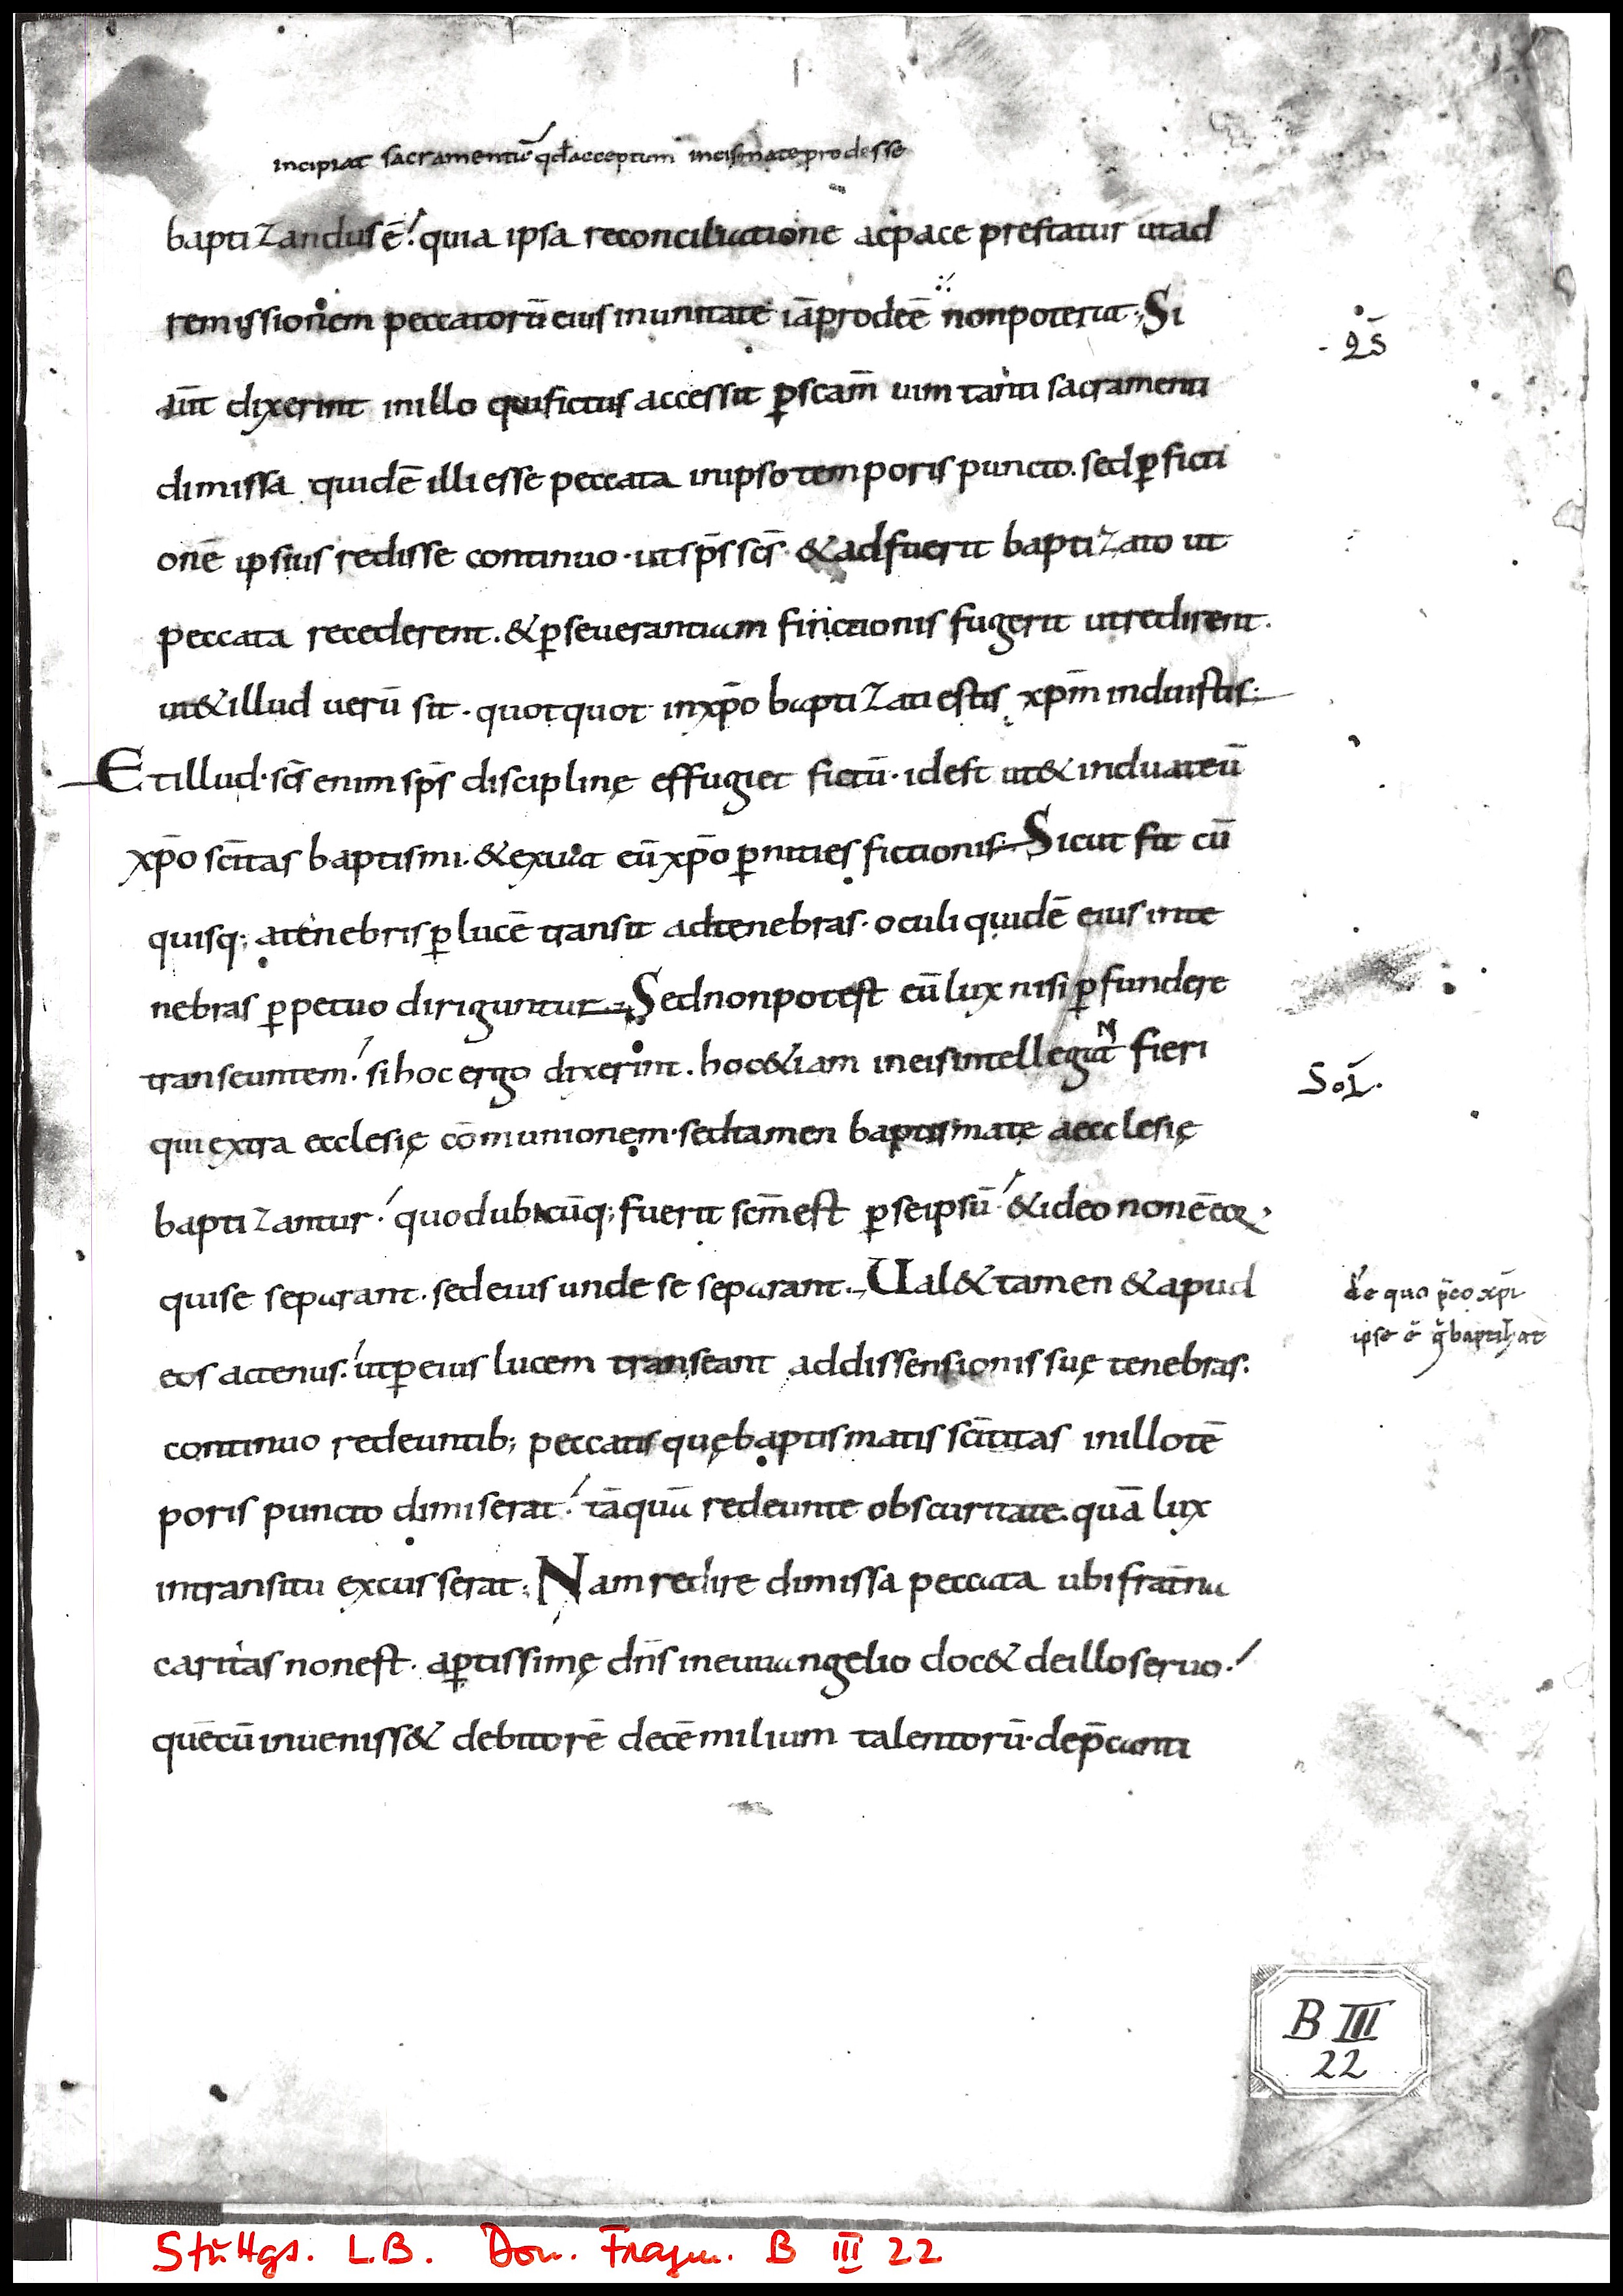 incipiat sacramentū qd acceptum incismate prodesse
baptizandus ē. quia ipsa reconciliatione ac pace prestatur ut ad
remissionem peccatorū eius in unitate iā prodeē non poterit. Si
aūt dixerint in illo qui fictus accessit ꝑ scam̄ uim tanti sacramenti
dimissa quidē illi esse peccata in ipso temporis puncto. sed ꝑ ficti
onē ipsius redisse continuo. ut sp̄s sc̄s. & adfuerit baptizato ut
peccata recederent. & ꝑseuerantiam finctionis fugerit ut redirent.
ut & illud uerū sit. quotquot in xp̄o baptizati estis xp̄m induistis.
Et illud. sc̄s enim sp̄s disciplinę effugiet fictū. id est ut & induat eū
xp̄o sc̄itas baptismi. & exuat eū xp̄o ꝑnities fictionis. Sicut fit cū
quisq; a tenebris ꝑ lucē transit ad tenebras. oculi quidē eius in te
nebras ꝑpetuo diriguntur. Sed non potest eū lux nisi ꝑfundere
transeuntem. si hoc ergo dixerint. hoc & iam in eis intellegant fieri
qui extra ecclesię cōmunionem. sed tamen baptismate aecclesię
baptizantur. quod ubicūq; fuerit scm̄ est ꝑ se ipsū. & ideo non ē eoꝝ.
qui se separant. sed eius unde se separant. Ual& tamen & apud
eos actenus. ut ꝑ eius lucem transeant ad dissensionis suę tenebras.
continuo redeuntib; peccatis quę baptismatis sc̄titas in illo tē
poris puncto dimiserat. tāquā redeunte obscuritate. quā lux
in transitu excusserat. Nam redire dimissa peccata ubi frat̄na
caritas non est. aꝑtissimę dn̄s in euuangelio doc& de illo seruo.
quē cū inueniss& debitorē decē milium talentorū. dep̄canti
Qs̄
Sol.
de quo p̄co xp̄i
ipse ē q̄ baptizat
B III
22
Stuttgt. L.B. Don. Fragm. B III 22